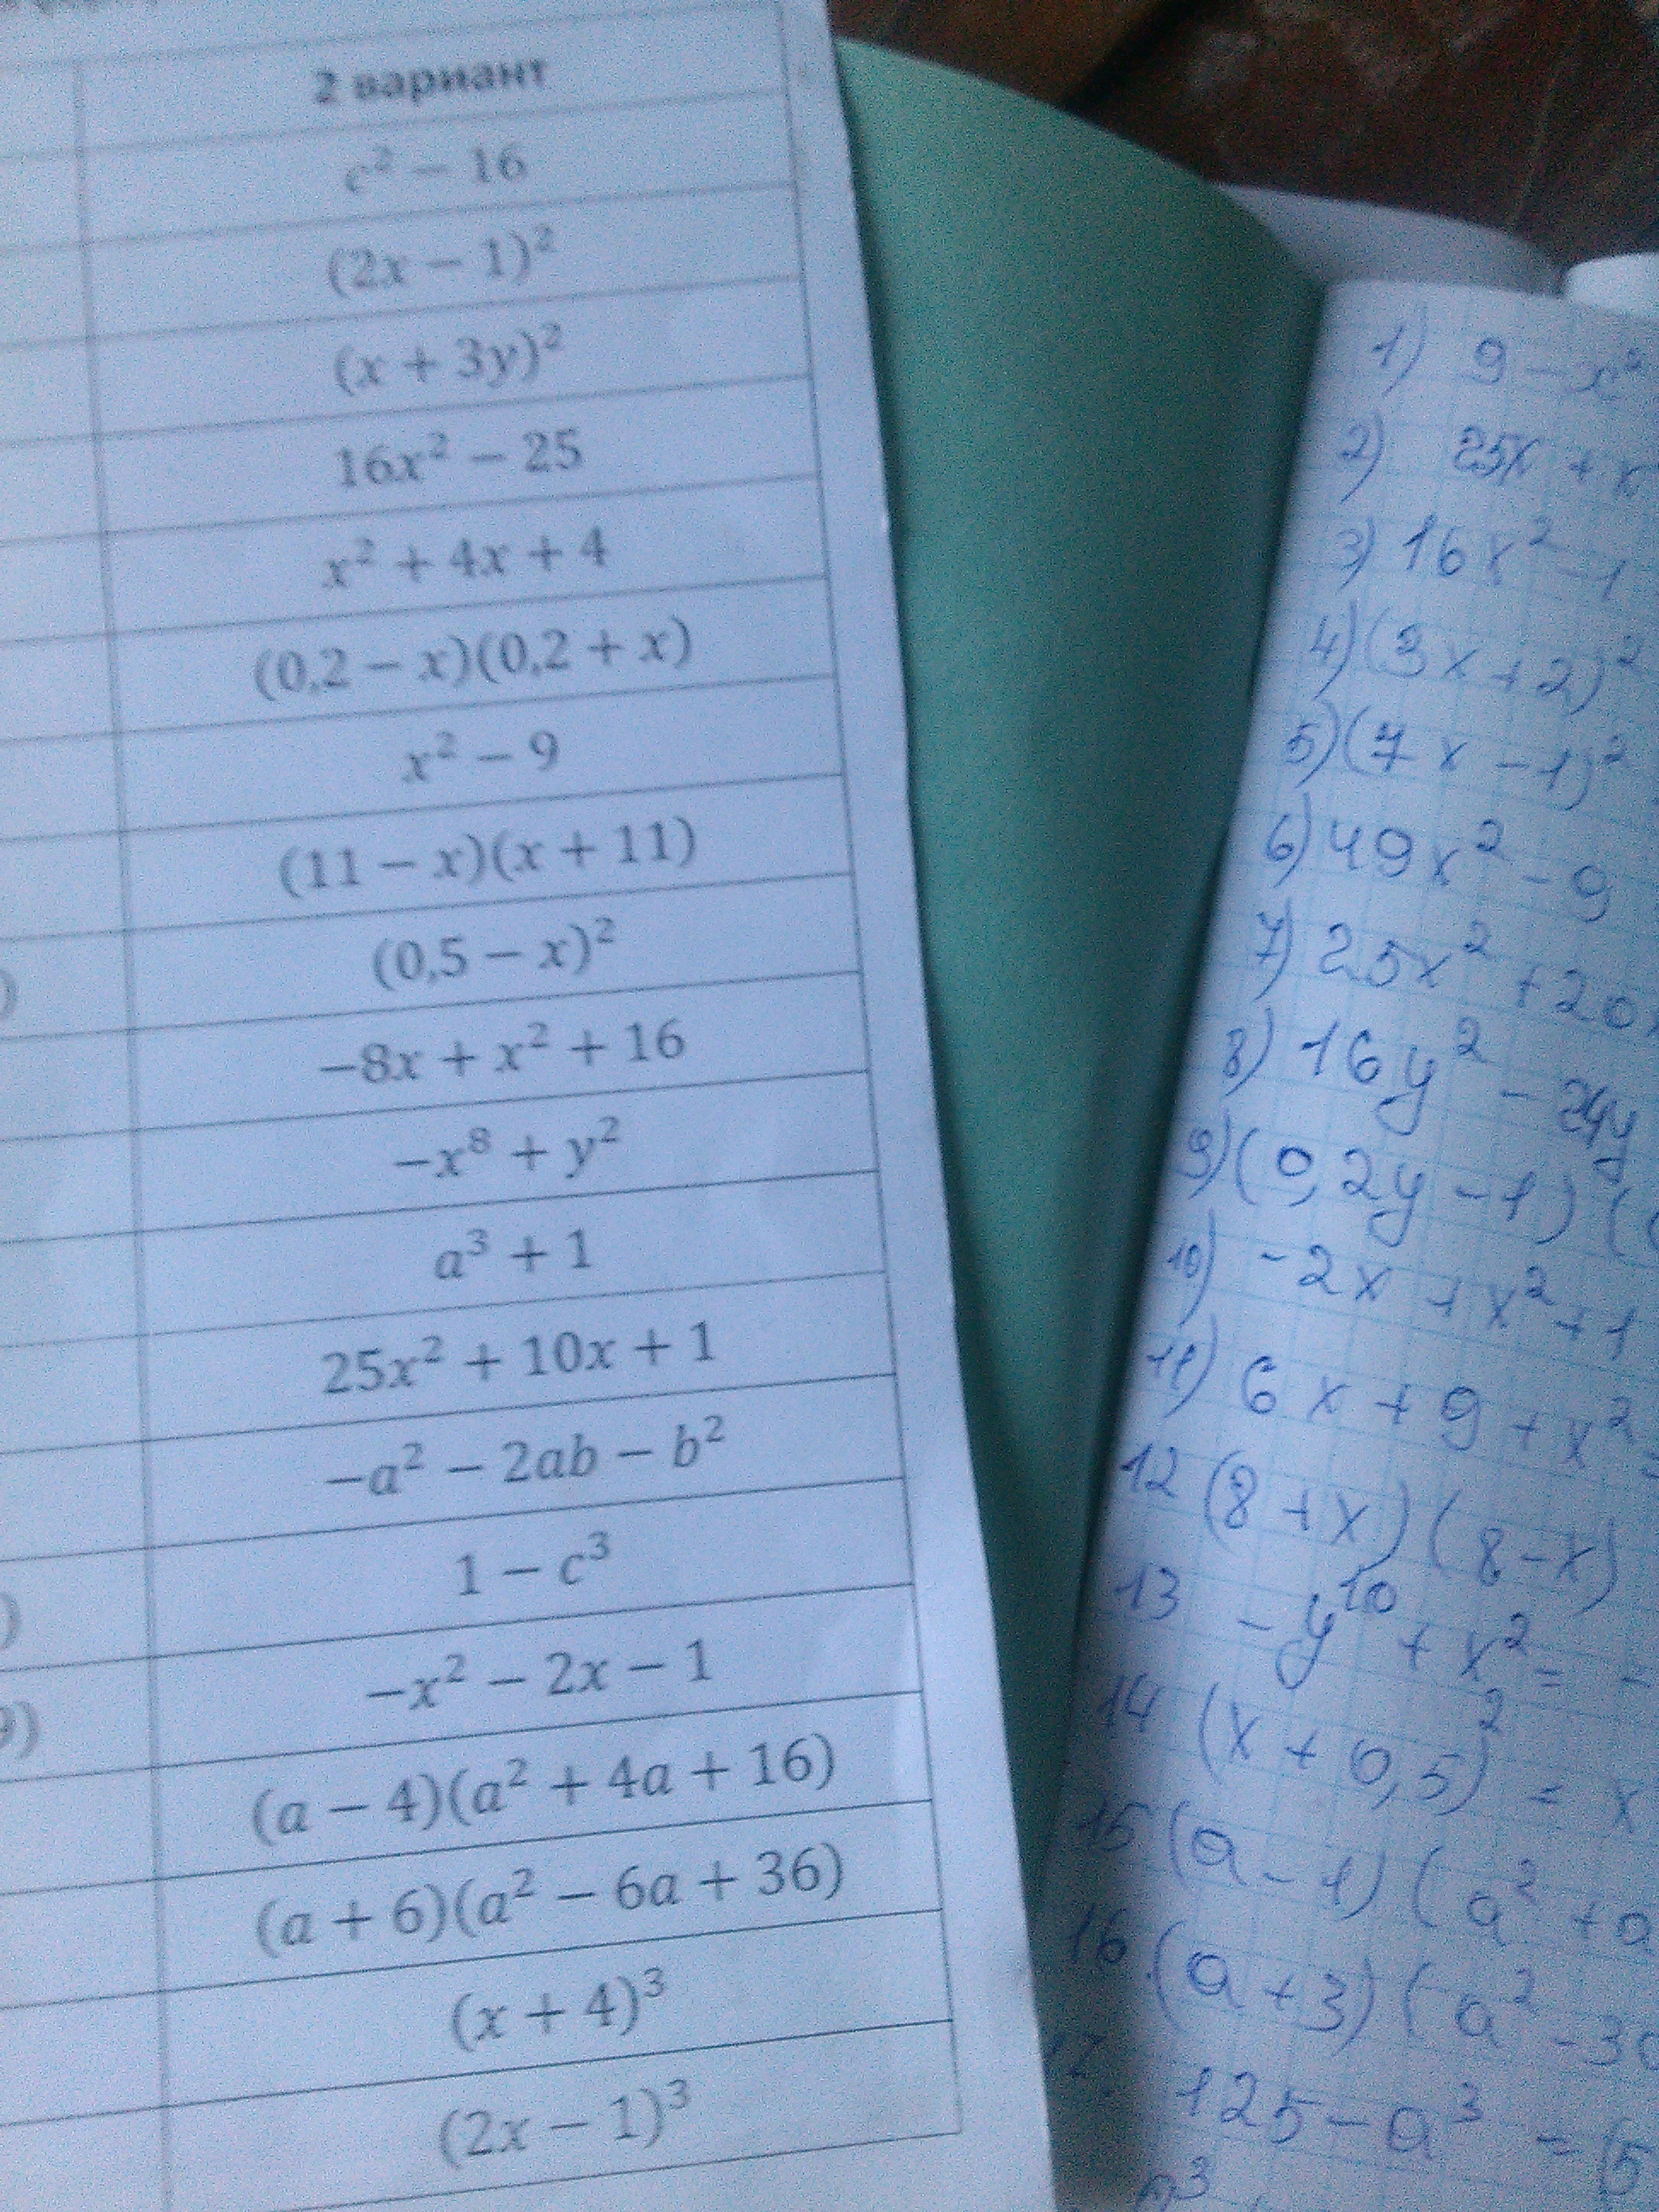 2 вариант
c² − 16
(2x − 1)²
(x + 3y)²
16x² − 25
x² + 4x + 4
(0,2 − x)(0,2 + x)
x² − 9
(11 − x)(x + 11)
(0,5 − x)²
−8x + x² + 16
−x⁸ + y²
a³ + 1
25x² + 10x + 1
−a² − 2ab − b²
1 − c³
−x² − 2x − 1
(a − 4)(a² + 4a + 16)
(a + 6)(a² − 6a + 36)
(x + 4)³
(2x − 1)³
)
)
9)
1) 9 − x²
2) 25x + x
3) 16x² − 1
4) (3x + 2)²
5) (7x − 1)²
6) 49x² − 9
7) 25x² + 20
8) 16y² − 24y
9) (0,2y − 1) (
10) −2x + x² + 1
11) 6x + 9 + x²
12 (8 + x) (8 − x)
13 −y¹⁰ + x² = −
14 (x + 0,5)² = x
15 (a − 1) (a² + a
16 (a + 3) (a² − 3a
17. 125 − a³ = (5